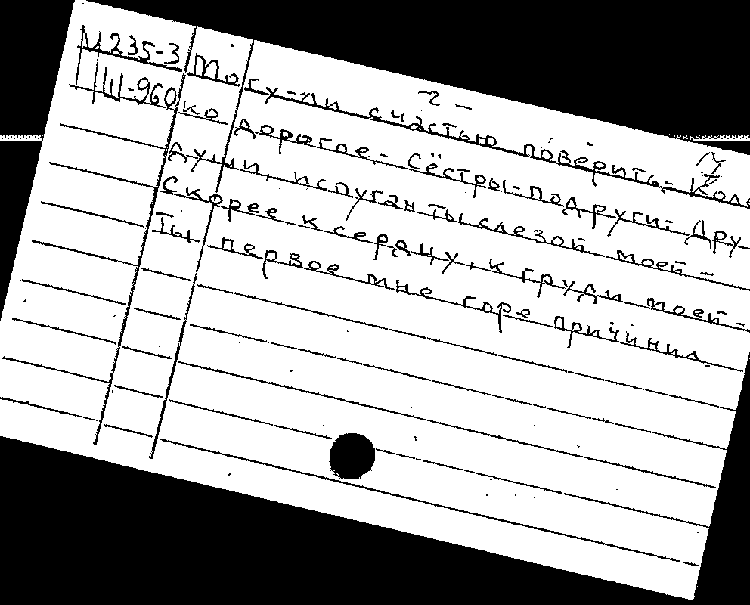 - 2 -
М235-3 Могу-ли счастью поверить- Коле
Ш-960 ко дорогое- Сёстры-подруги- Дру
души, испуган ты слезой моей-
Скорее к сердцу, к груди моей-
Ты первое мне горе причинил.